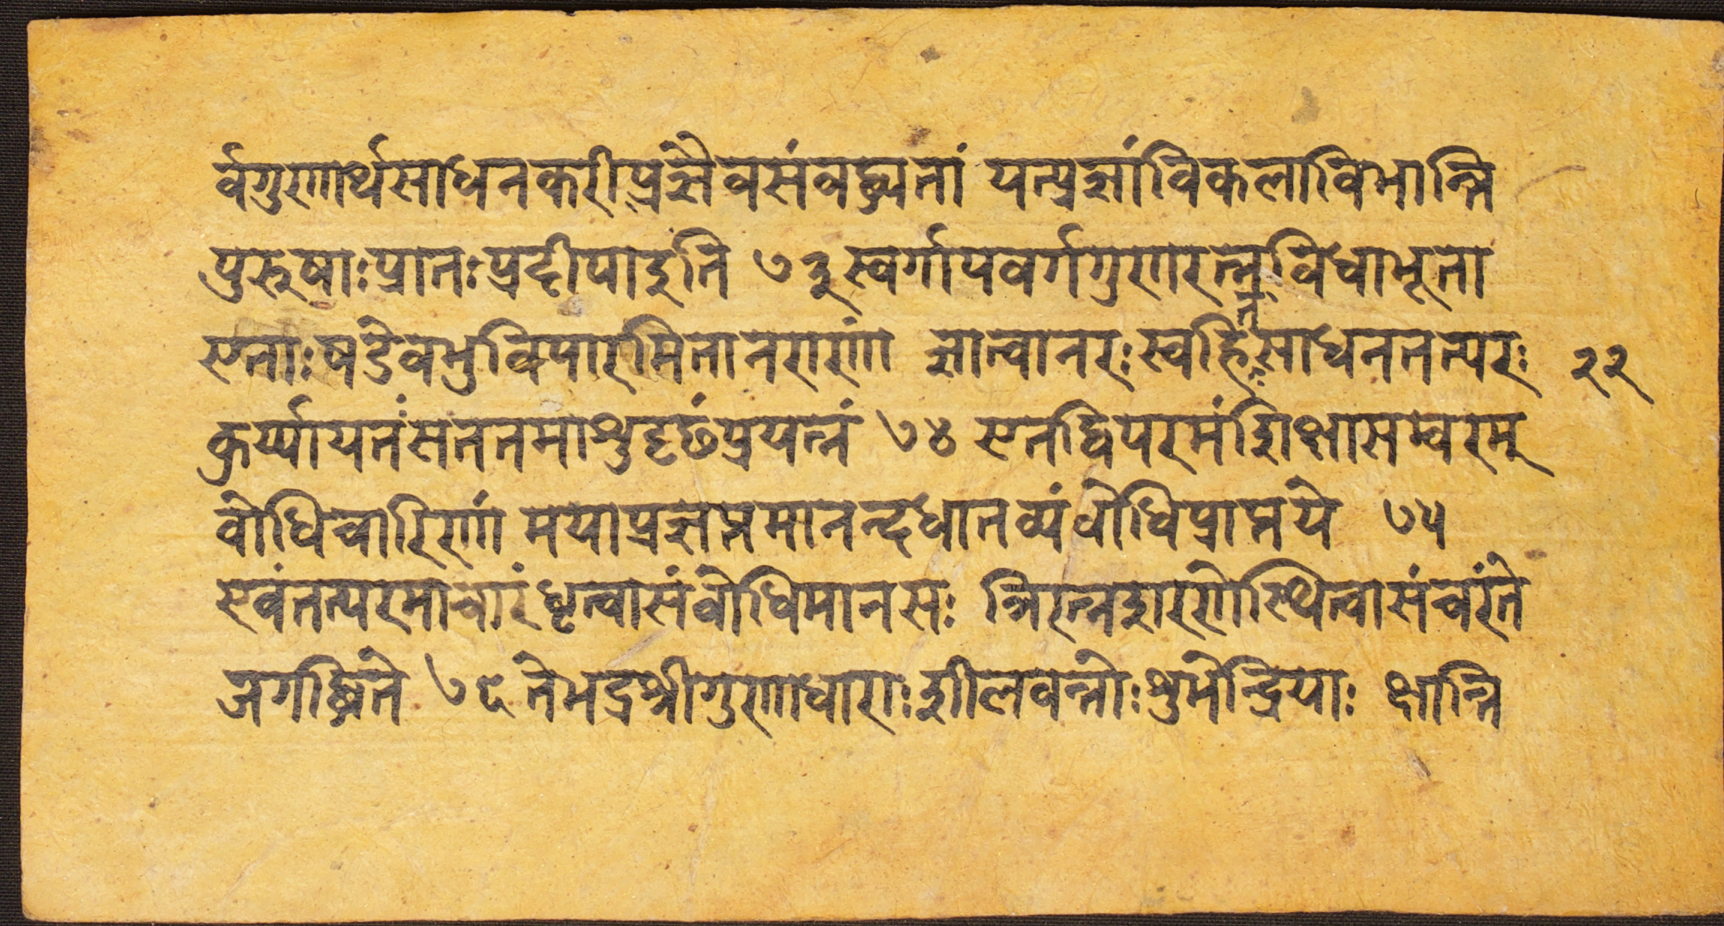 र्वगुणार्थसाधनकरीप्रज्ञैवसंवध्यतां यत्प्रज्ञांविकलाविभान्ति
पुरुषाःप्रातःप्रदीपाइति ७३ स्वर्गापवर्गगुणरत्नविधाभूता
एताःषडेवभुविपारमितानराणां ज्ञात्वानरःस्वहितसाधनतत्परः २२
कुर्य्यायतंसततमाशुदृढंप्रयत्नं ७४ एतद्धिपरमंशिक्षासम्वरम्
वोधिचारिणां मयाप्रज्ञप्तमानन्दधातव्यंवोधिप्राप्तये ७५
एवंतत्परमाचारंधृत्वासंवोधिमानसः त्रिरत्नशरणेस्थित्वासंचरंते
जगद्धिते ७६ तेभद्रश्रीगुणाधाराःशीलवन्तोःशुभेन्द्रियाः क्षान्ति